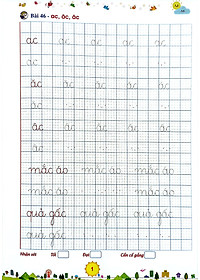 Bài 46 - ac, ăc, âc
ac ac ac ac ac
ac
ăc ăc ăc ăc ăc
ăc
âc âc âc âc âc
âc
mắc áo mắc áo mắc áo
mắc áo mắc áo mắc áo
quả gấc quả gấc quả gấc
quả gấc
Nhận xét Tốt Đạt Cần cố gắng
1